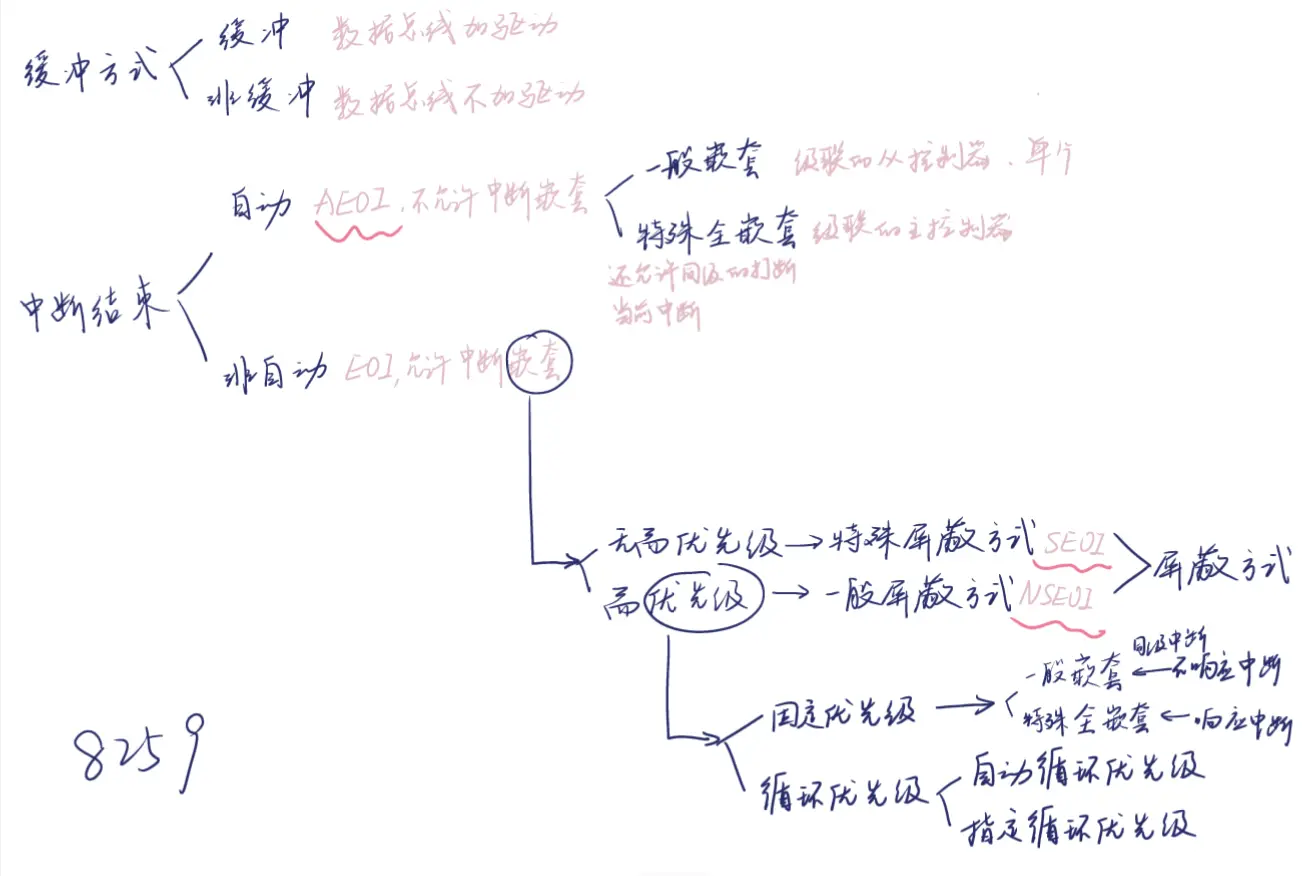 缓冲方式
缓冲 数据总线加驱动
非缓冲 数据总线不加驱动
中断结束
自动 AEOI,不允许中断嵌套
一般嵌套 级联的从控制器、单个
特殊全嵌套 级联的主控制器
还允许同级的打断
当前中断
非自动 EOI,允许中断嵌套
无需优先级→特殊屏蔽方式 SEOI
需优先级→一般屏蔽方式 NSEOI
屏蔽方式
固定优先级→
同级中断
一般嵌套←不响应中断
特殊全嵌套←响应中断
循环优先级
自动循环优先级
指定循环优先级
8259